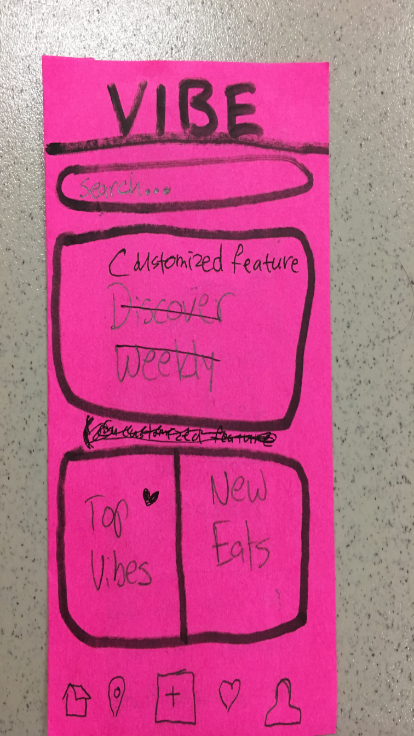 VIBE
Search...
Customized feature
Discover
Weekly
customized feature
Top
Vibes
New
Eats